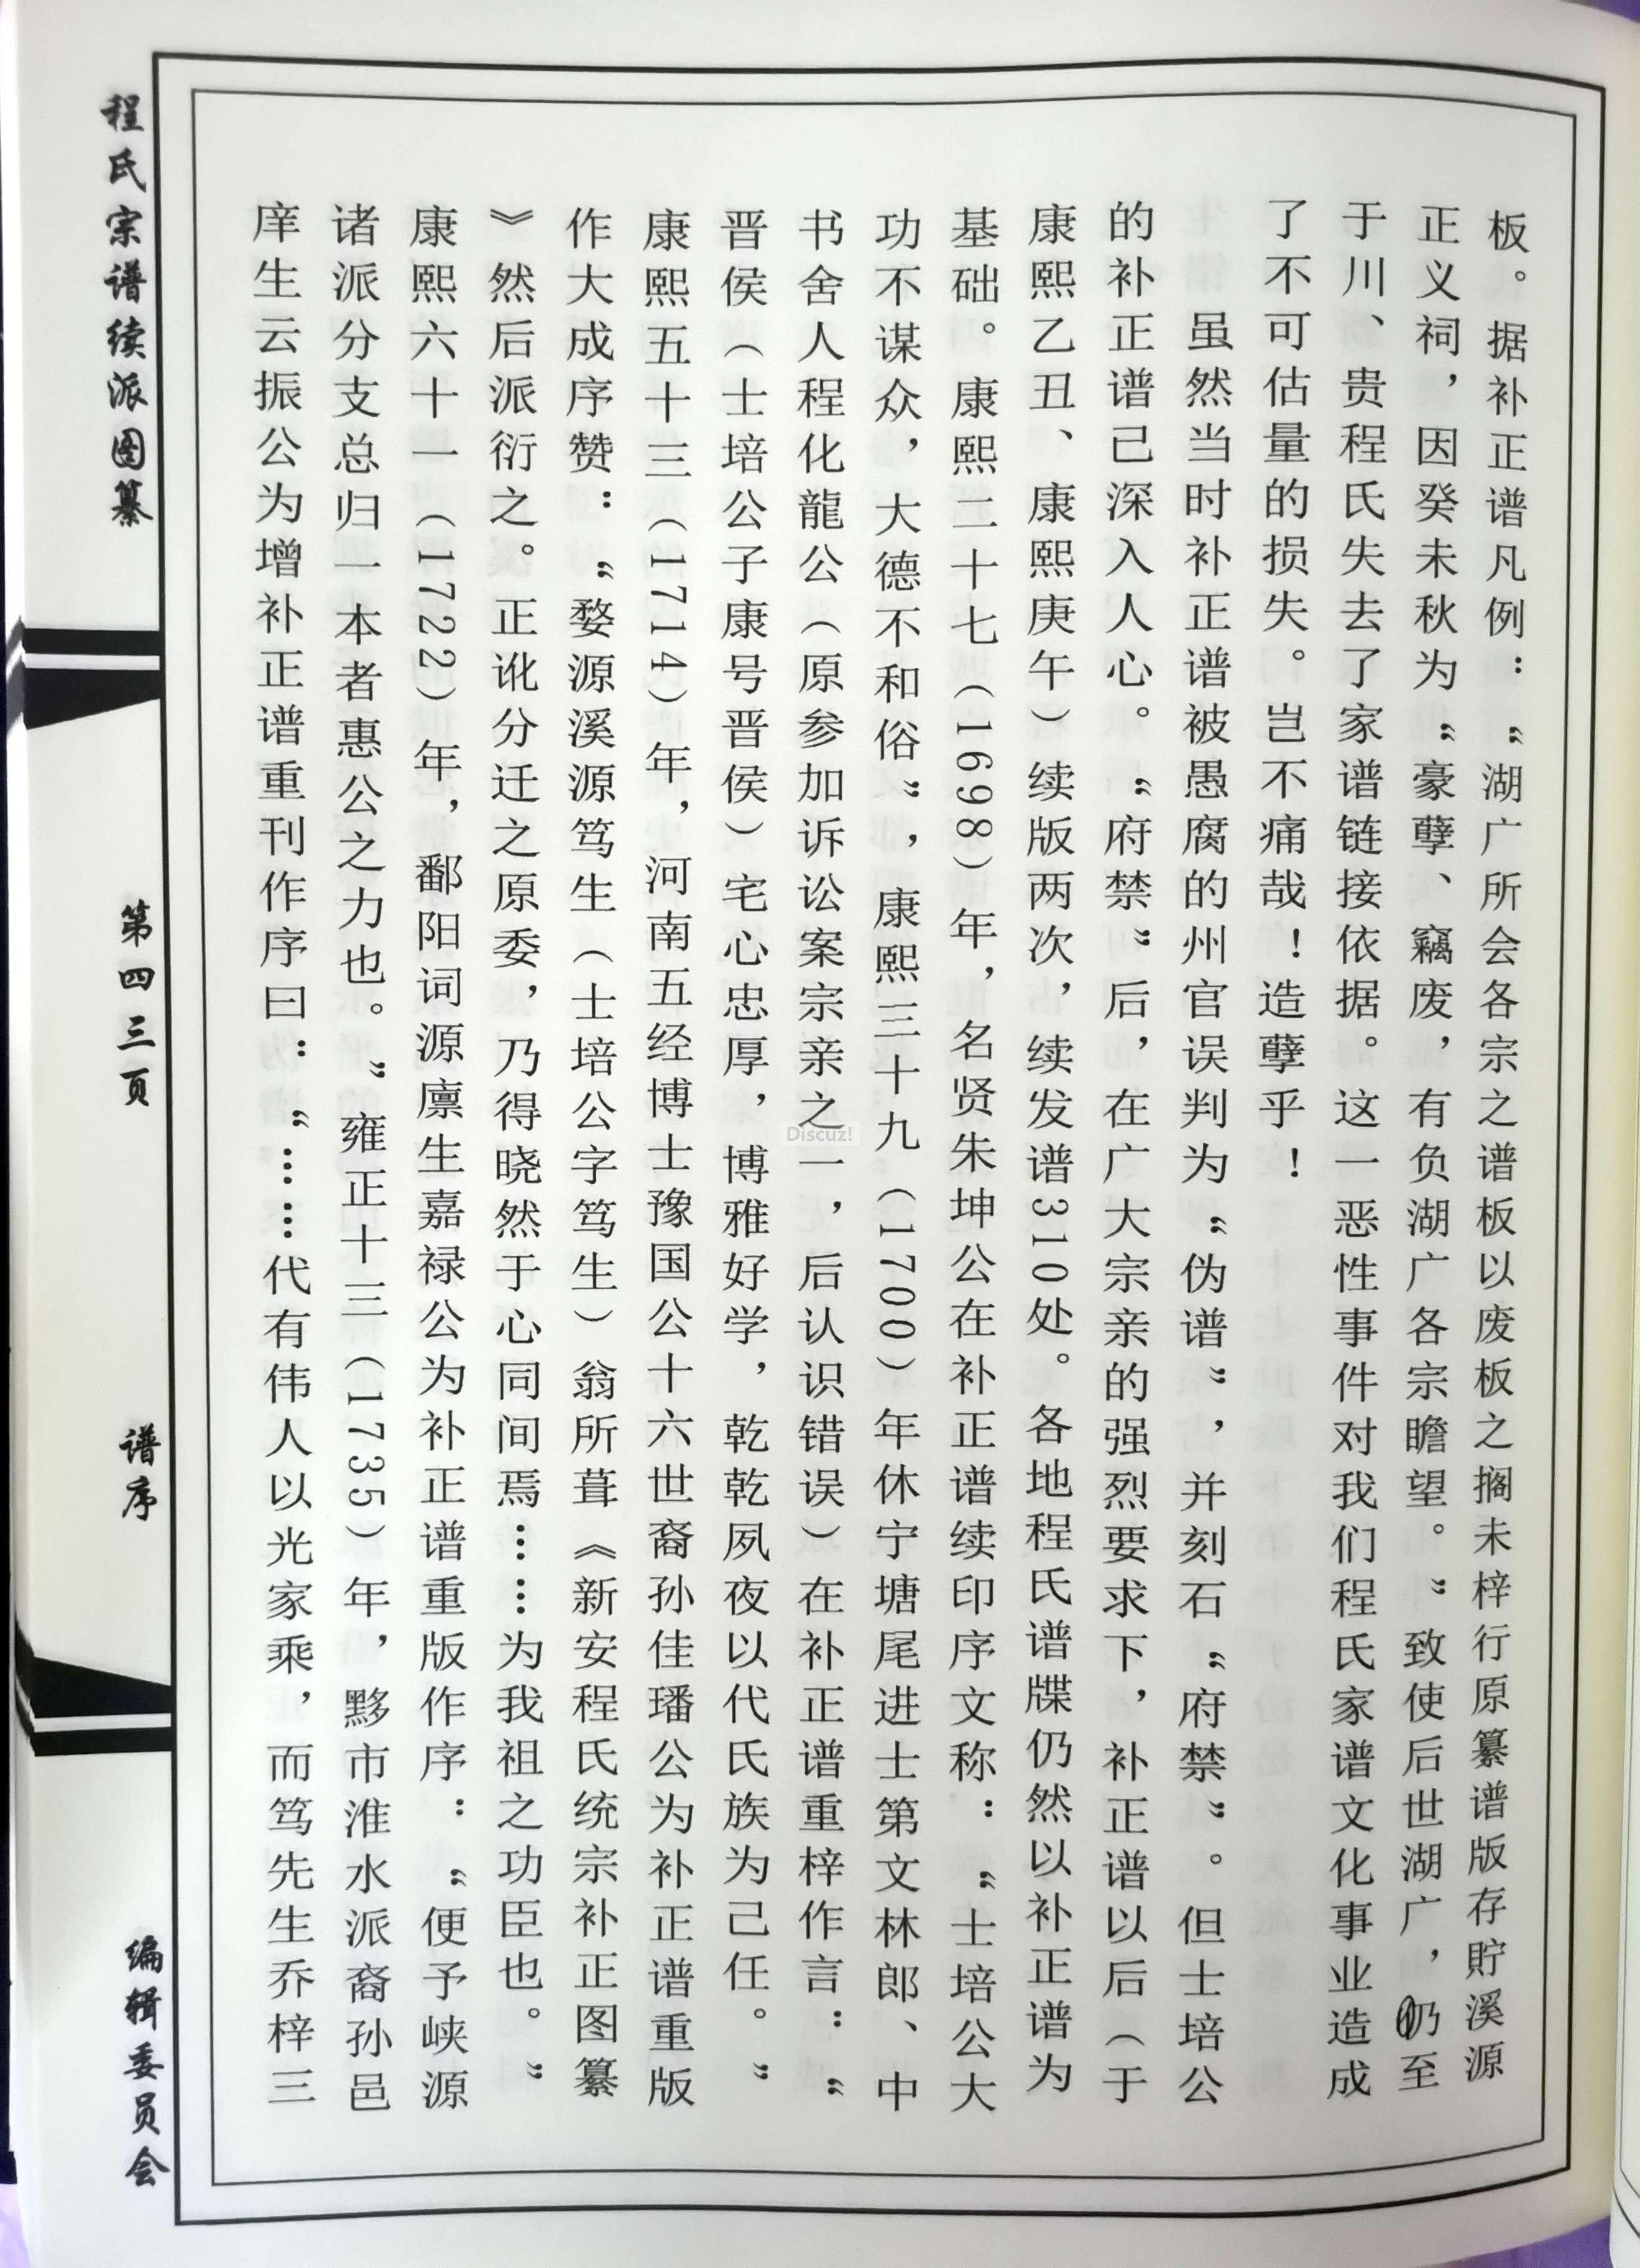 板。据补正谱凡例：“湖广所会各宗之谱板以废板之搁未梓行原纂谱版存貯溪源
正义祠，因癸未秋为“豪孽、竊废，有负湖广各宗瞻望。”致使后世湖广，仍至
于川、贵程氏失去了家谱链接依据。这一恶性事件对我们程氏家谱文化事业造成
了不可估量的损失。岂不痛哉！造孽乎！
虽然当时补正谱被愚腐的州官误判为“伪谱”，并刻石“府禁”。但士培公
的补正谱己深入人心。“府禁”后，在广大宗亲的强烈要求下，补正谱以后（于
康熙乙丑、康熙庚午）续版两次，续发谱310处。各地程氏谱牒仍然以补正谱为
基础。康熙二十七（1698）年，名贤朱坤公在补正谱续印序文称：“士培公大
功不谋众，大德不和俗”，康熙三十九（1700）年休宁塘尾进士第文林郎、中
书舍人程化龍公（原参加诉讼案宗亲之一，后认识错误）在补正谱重梓作言：“
晋侯（士培公子康号晋侯）宅心忠厚，博雅好学，乾乾夙夜以代氏族为己任。”
康熙五十三（1714）年，河南五经博士豫国公十六世裔孙佳璠公为补正谱重版
作大成序赞：“婺源溪源笃生（士培公字笃生）翁所葺《新安程氏统宗补正图纂
》然后派衍之。正讹分迁之原委，乃得晓然于心同间焉……为我祖之功臣也。”
康熙六十一（1722）年，鄱阳词源廪生嘉禄公为补正谱重版作序：“便予峡源
诸派分支总归一本者惠公之力也。”雍正十三（1735）年，黟市淮水派裔孙邑
庠生云振公为增补正谱重刊作序曰：“……代有伟人以光家乘，而笃先生乔梓三
程氏宗谱续派图纂
第四三页
谱序
编辑委员会
Discuz!